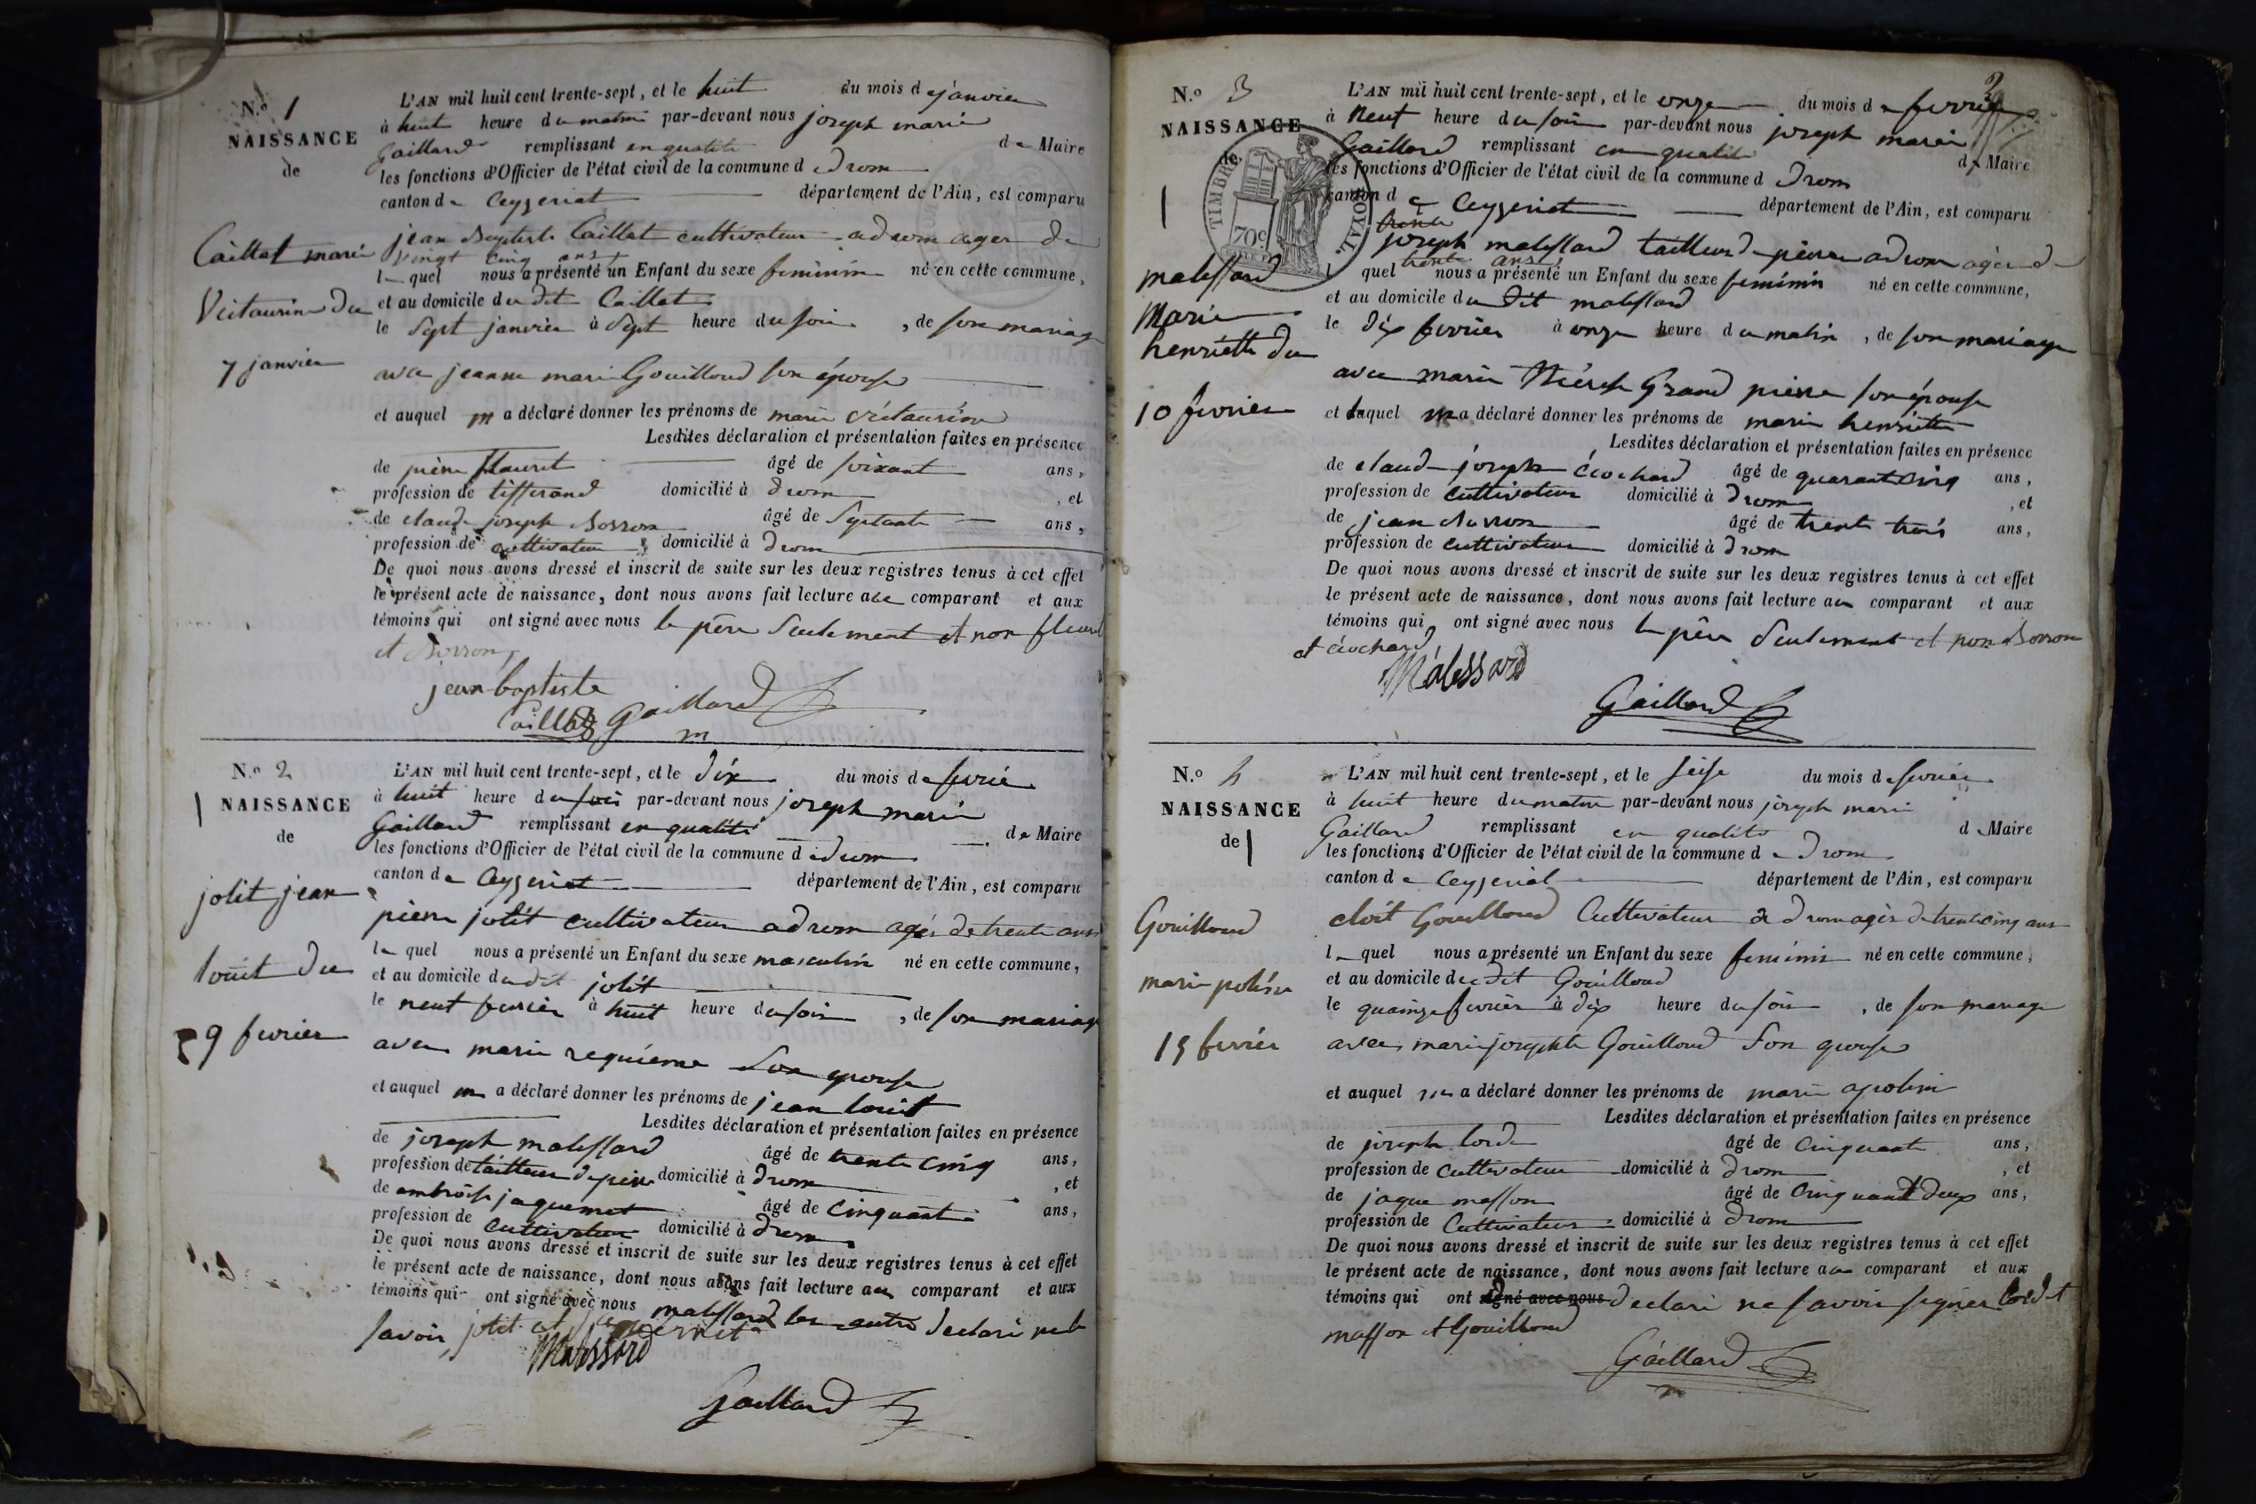 N.o 1
NAISSANCE
de
Caillat marie
Victaurine du
7 janvier
L'AN mil huit cent trente-sept, et le huit du mois de janvier
à huit heure du matin par-devant nous joseph marie
Gaillard remplissant en qualité de Maire
les fonctions d'Officier de l'état civil de la commune de drom
canton de Ceyzeriat département de l'Ain, est comparu
jean Baptiste Caillat cultivateur a drom ager de
vingt cinq ans
le quel nous a présenté un Enfant du sexe feminin né en cette commune,
et au domicile du dit Caillat
le sept janvier à sept heure du soir, de son mariage
avec jeanne marie Gouilloud son épouse
et auquel m a déclaré donner les prénoms de marie victaurine
Lesdites déclaration et présentation faites en présence
de pierre fleuret âgé de soixant ans,
profession de tisserand domicilié à drom, et
de claude joseph Borron âgé de septante ans,
profession de cultivateur domicilié à drom
De quoi nous avons dressé et inscrit de suite sur les deux registres tenus à cet effet
le présent acte de naissance, dont nous avons fait lecture au comparant et aux
témoins qui ont signé avec nous le père seulement et non fleuret
et Borron
jean baptiste
Caillat Gaillard
m
N.o 2
NAISSANCE
de
jolit jean
louit du
9 fevrier
L'AN mil huit cent trente-sept, et le dix du mois de fevrié
à huit heure du soir par-devant nous joseph marie
Gaillard remplissant en qualité de Maire
les fonctions d'Officier de l'état civil de la commune de drom
canton de Ceyzeriat département de l'Ain, est comparu
pierre jolit cultivateur a drom agés de trente ans
le quel nous a présenté un Enfant du sexe masculin né en cette commune,
et au domicile du dit jolit
le neuf fevrier à huit heure du soir, de son mariage
avec marie requieme son epouse
et auquel m a déclaré donner les prénoms de jean louit
Lesdites déclaration et présentation faites en présence
de joseph malessard âgé de trente cinq ans,
profession de tailleur de pierre domicilié à drom, et
de ambroise jaquemet âgé de cinquante ans,
profession de cultivateur domicilié à drom
De quoi nous avons dressé et inscrit de suite sur les deux registres tenus à cet effet
le présent acte de naissance, dont nous avons fait lecture au comparant et aux
témoins qui ont signé avec nous malessard les autre declaré ne le
savoir, jolit et jaquemet
Malessard
Gaillard
2
N.o 3
NAISSANCE
de
TIMBRE ROYAL.
70c
malessard
Marie
henriette du
10 fevrier
L'AN mil huit cent trente-sept, et le onze du mois de fevrier
à neuf heure du soir par-devant nous joseph marie
Gaillard remplissant en qualité de Maire
les fonctions d'Officier de l'état civil de la commune de drom
canton de Ceyzeriat département de l'Ain, est comparu
joseph malessard tailleur de pierre a drom agés de
trente ans
quel nous a présenté un Enfant du sexe feminin né en cette commune,
et au domicile du dit malessard
le dix fevrier à onze heure du matin, de son mariage
avec marie thérese Grand pierre son épouse
et auquel m a déclaré donner les prénoms de marie henriette
Lesdites déclaration et présentation faites en présence
de claude joseph écochard âgé de quarante cinq ans,
profession de cultivateur domicilié à drom, et
de jean Borron âgé de trente trois ans,
profession de cultivateur domicilié à drom
De quoi nous avons dressé et inscrit de suite sur les deux registres tenus à cet effet
le présent acte de naissance, dont nous avons fait lecture au comparant et aux
témoins qui ont signé avec nous le père seulement et non Borron
et écochard
Malessard
Gaillard
N.o 4
NAISSANCE
de
Gouilloud
marie poline
15 fevrier
L'AN mil huit cent trente-sept, et le seise du mois de fevrier
à huit heure du matin par-devant nous joseph marie
Gaillard remplissant en qualité de Maire
les fonctions d'Officier de l'état civil de la commune de drom
canton de Ceyzeriat département de l'Ain, est comparu
Gouilloud Cultivateur a drom agés de trente cinq ans
le quel nous a présenté un Enfant du sexe feminin né en cette commune,
et au domicile du dit Gouilloud
le quainze fevrier à dix heure du soir, de son mariage
avec marie josephte Gouilloud son epouse
et auquel m a déclaré donner les prénoms de marie apoline
Lesdites déclaration et présentation faites en présence
de joseph âgé de cinquante ans,
profession de cultivateur domicilié à drom, et
de jaque masson âgé de cinquante deux ans,
profession de Cultivateur domicilié à drom
De quoi nous avons dressé et inscrit de suite sur les deux registres tenus à cet effet
le présent acte de naissance, dont nous avons fait lecture au comparant et aux
témoins qui ont signé avec nous declaré ne savoir signer
masson et Gouilloud
Gaillard